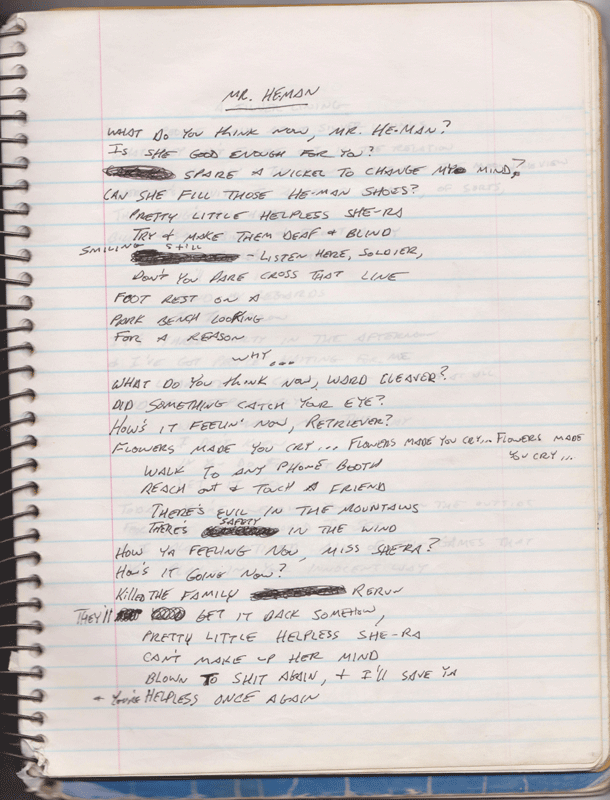 MR. HEMAN
WHAT DO YOU THINK NOW, MR. HE-MAN?
IS SHE GOOD ENOUGH FOR YOU?
SPARE A NICKEL TO CHANGE MY MIND,?
CAN SHE FILL THOSE HE-MAN SHOES?
PRETTY LITTLE HELPLESS SHE-RA
TRY & MAKE THEM DEAF & BLIND
SMILING STILL - LISTEN HERE, SOLDIER,
DON'T YOU DARE CROSS THAT LINE
FOOT REST ON A
PARK BENCH LOOKING
FOR A REASON
WHY...
WHAT DO YOU THINK NOW, WARD CLEAVER?
DID SOMETHING CATCH YOUR EYE?
HOW'S IT FEELIN' NOW, RETRIEVER?
FLOWERS MADE YOU CRY... FLOWERS MADE YOU CRY... FLOWERS MADE
YOU CRY...
WALK TO ANY PHONE BOOTH
REACH OUT & TOUCH A FRIEND
THERE'S EVIL IN THE MOUNTAINS
THERE'S SAFETY IN THE WIND
HOW YA FEELING NOW, MISS SHE-RA?
HOW'S IT GOING NOW?
KILLED THE FAMILY RERUN
THEY'LL GET IT BACK SOMEHOW,
PRETTY LITTLE HELPLESS SHE-RA
CAN'T MAKE UP HER MIND
BLOWN TO SHIT AGAIN, & I'LL SAVE YA
& YOU'RE HELPLESS ONCE AGAIN